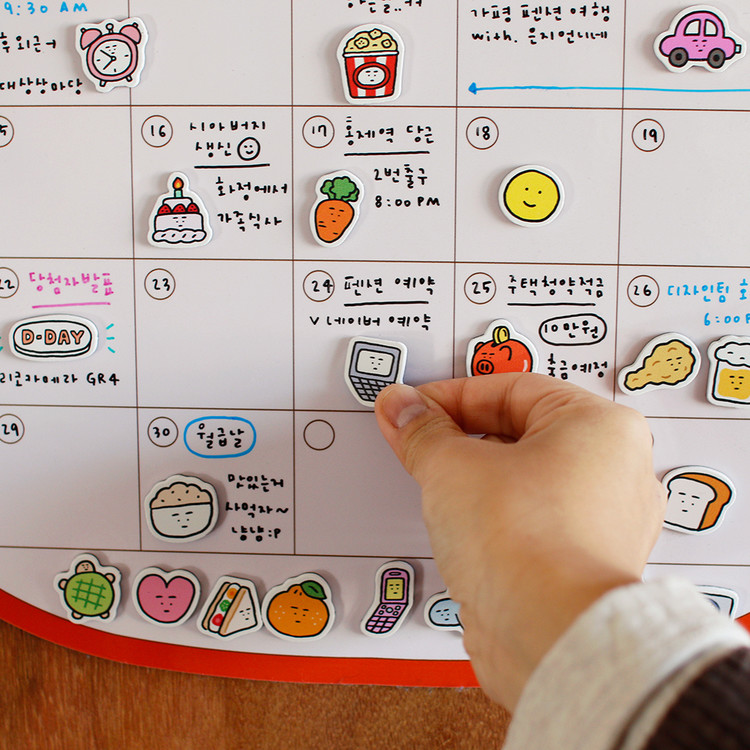 9:30 AM
대상상마당
가평 펜션 여행
with. 은지언니네
16 시아버지
생신
화정에서
가족식사
17 홍제역 당근
2번출구
8:00 PM
18
19
22 당첨자발표
D-DAY
리코카메라 GR4
23
24 펜션 예약
V 네이버 예약
25 주택청약적금
10만원
출금예정
26 디자인팀
6:00
29
30 월급날
맛있는거
사먹자~
냠냠:P